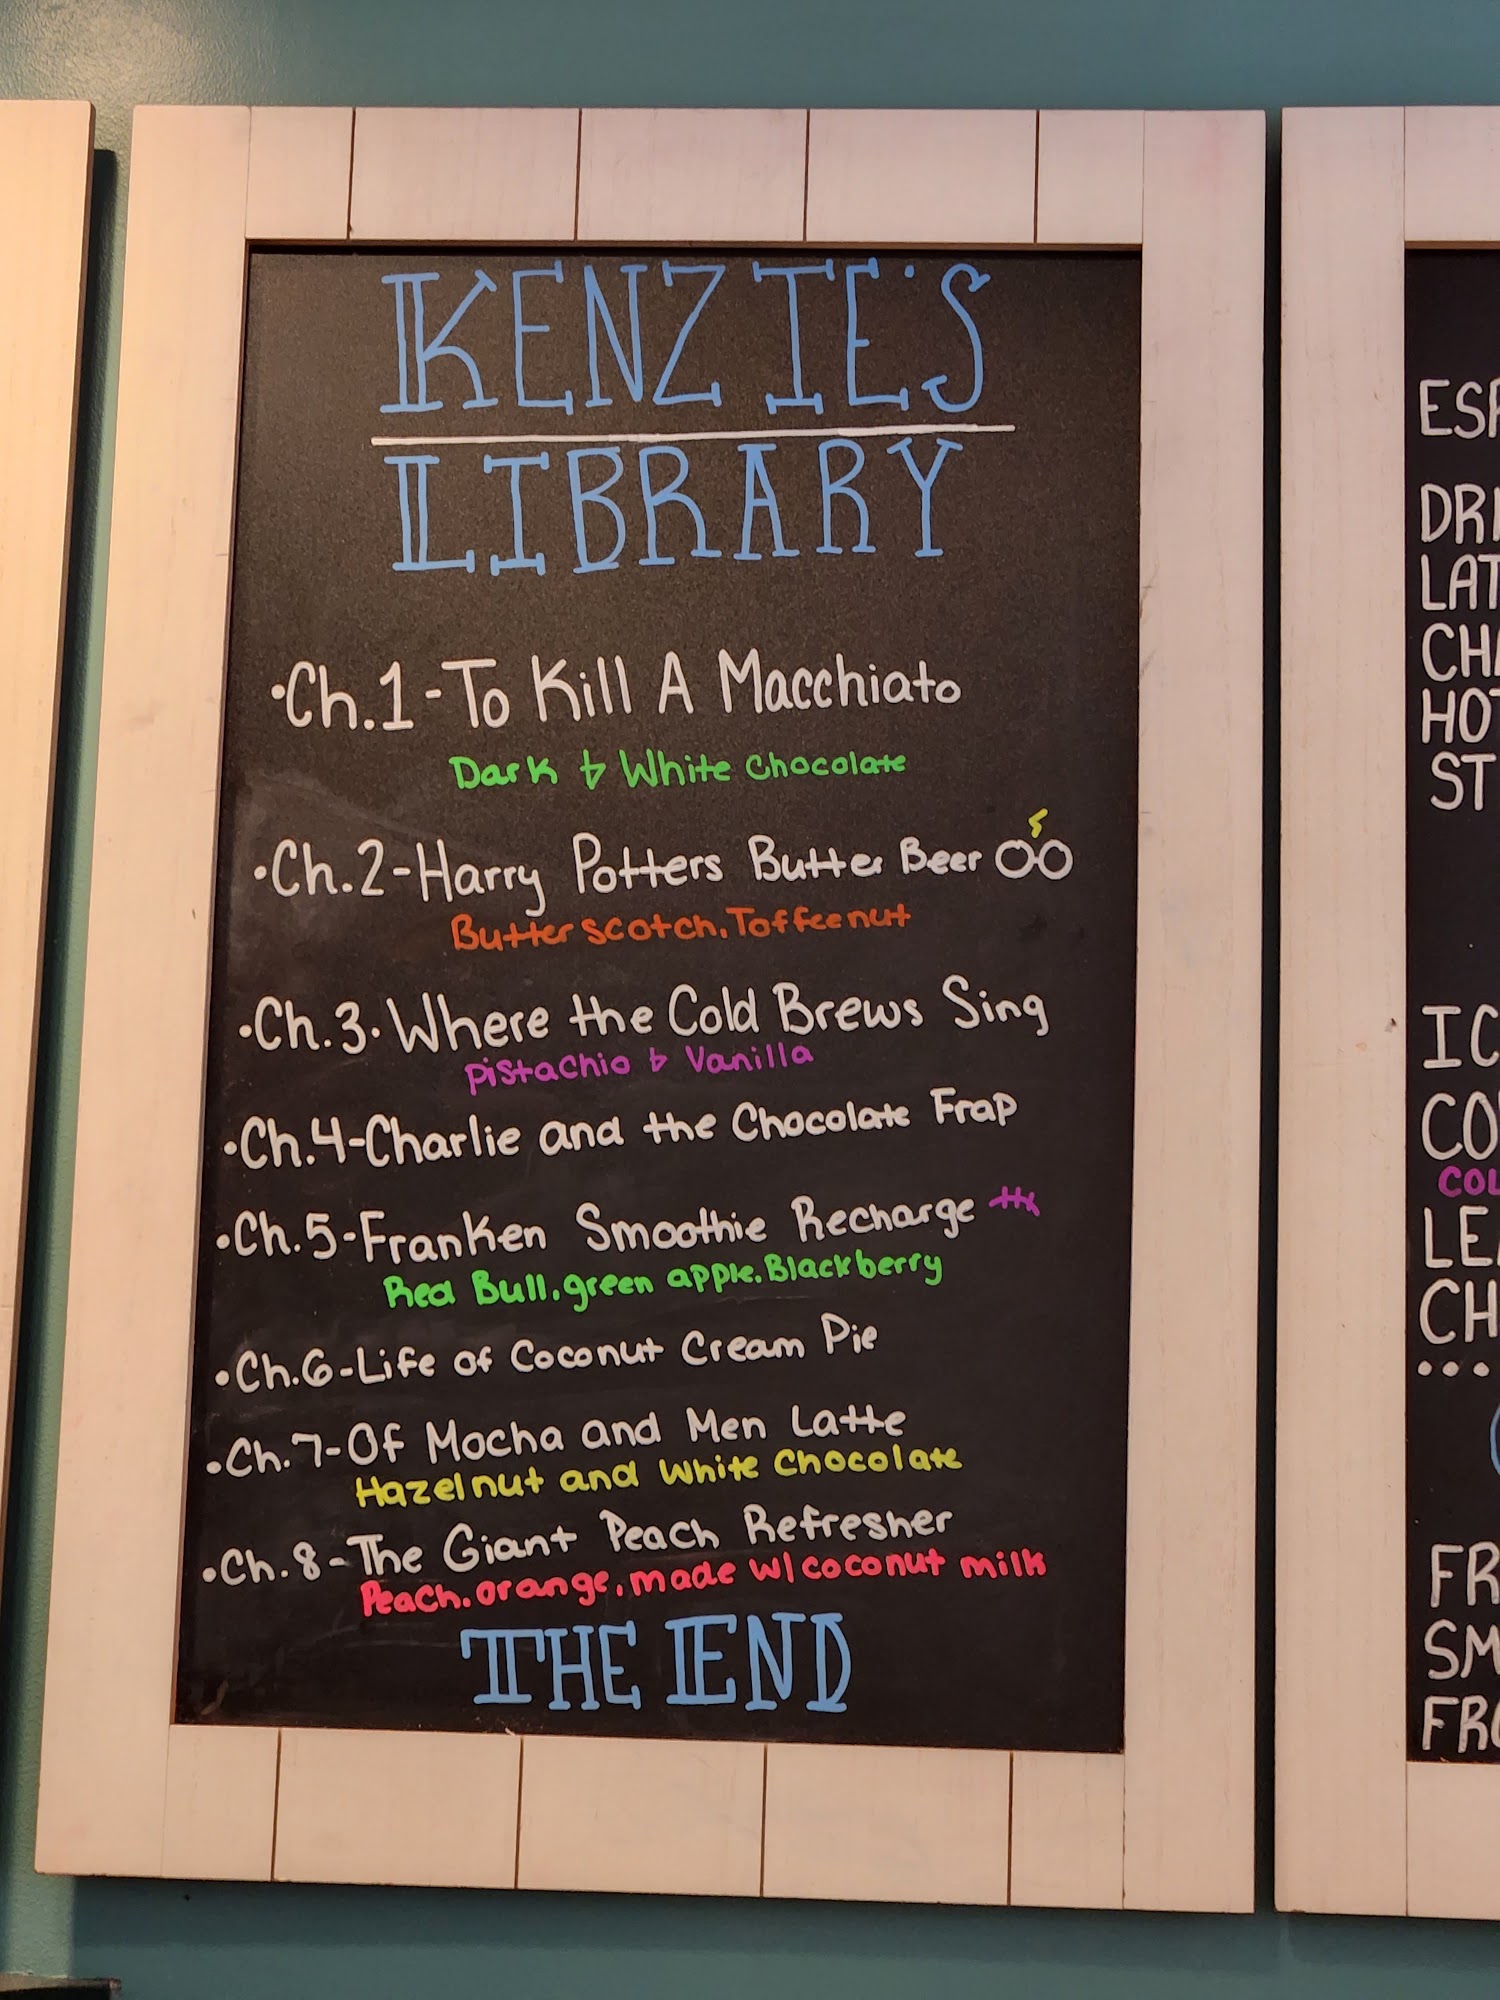 KENZIE'S
LIBRARY
•Ch.1-To Kill A Macchiato
Dark & White Chocolate
•Ch.2-Harry Potters Butter Beer
Butter scotch, Toffee nut
•Ch.3. Where the Cold Brews Sing
Pistachio & Vanilla
•Ch.4-Charlie and the Chocolate Frap
•Ch.5-Franken Smoothie Recharge
Red Bull, green apple, Blackberry
•Ch.6-Life of Coconut Cream Pie
•Ch.7-Of Mocha and Men Latte
Hazelnut and White Chocolate
•Ch.8-The Giant Peach Refresher
Peach, orange, made w/ coconut milk
THE END
ESP
DRI
LAT
CHA
HOT
ST
IC
CO
COL
LE
CH
...
FR
SM
FRO